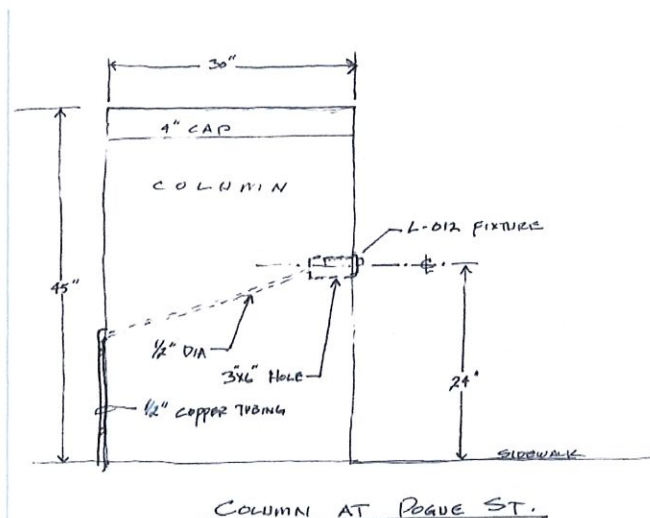 30"
4" CAP
COLUMN
L-012 FIXTURE
45"
1/2" DIA
3"x6" HOLE
24"
1/2" COPPER TUBING
SIDEWALK
COLUMN AT POGUE ST.